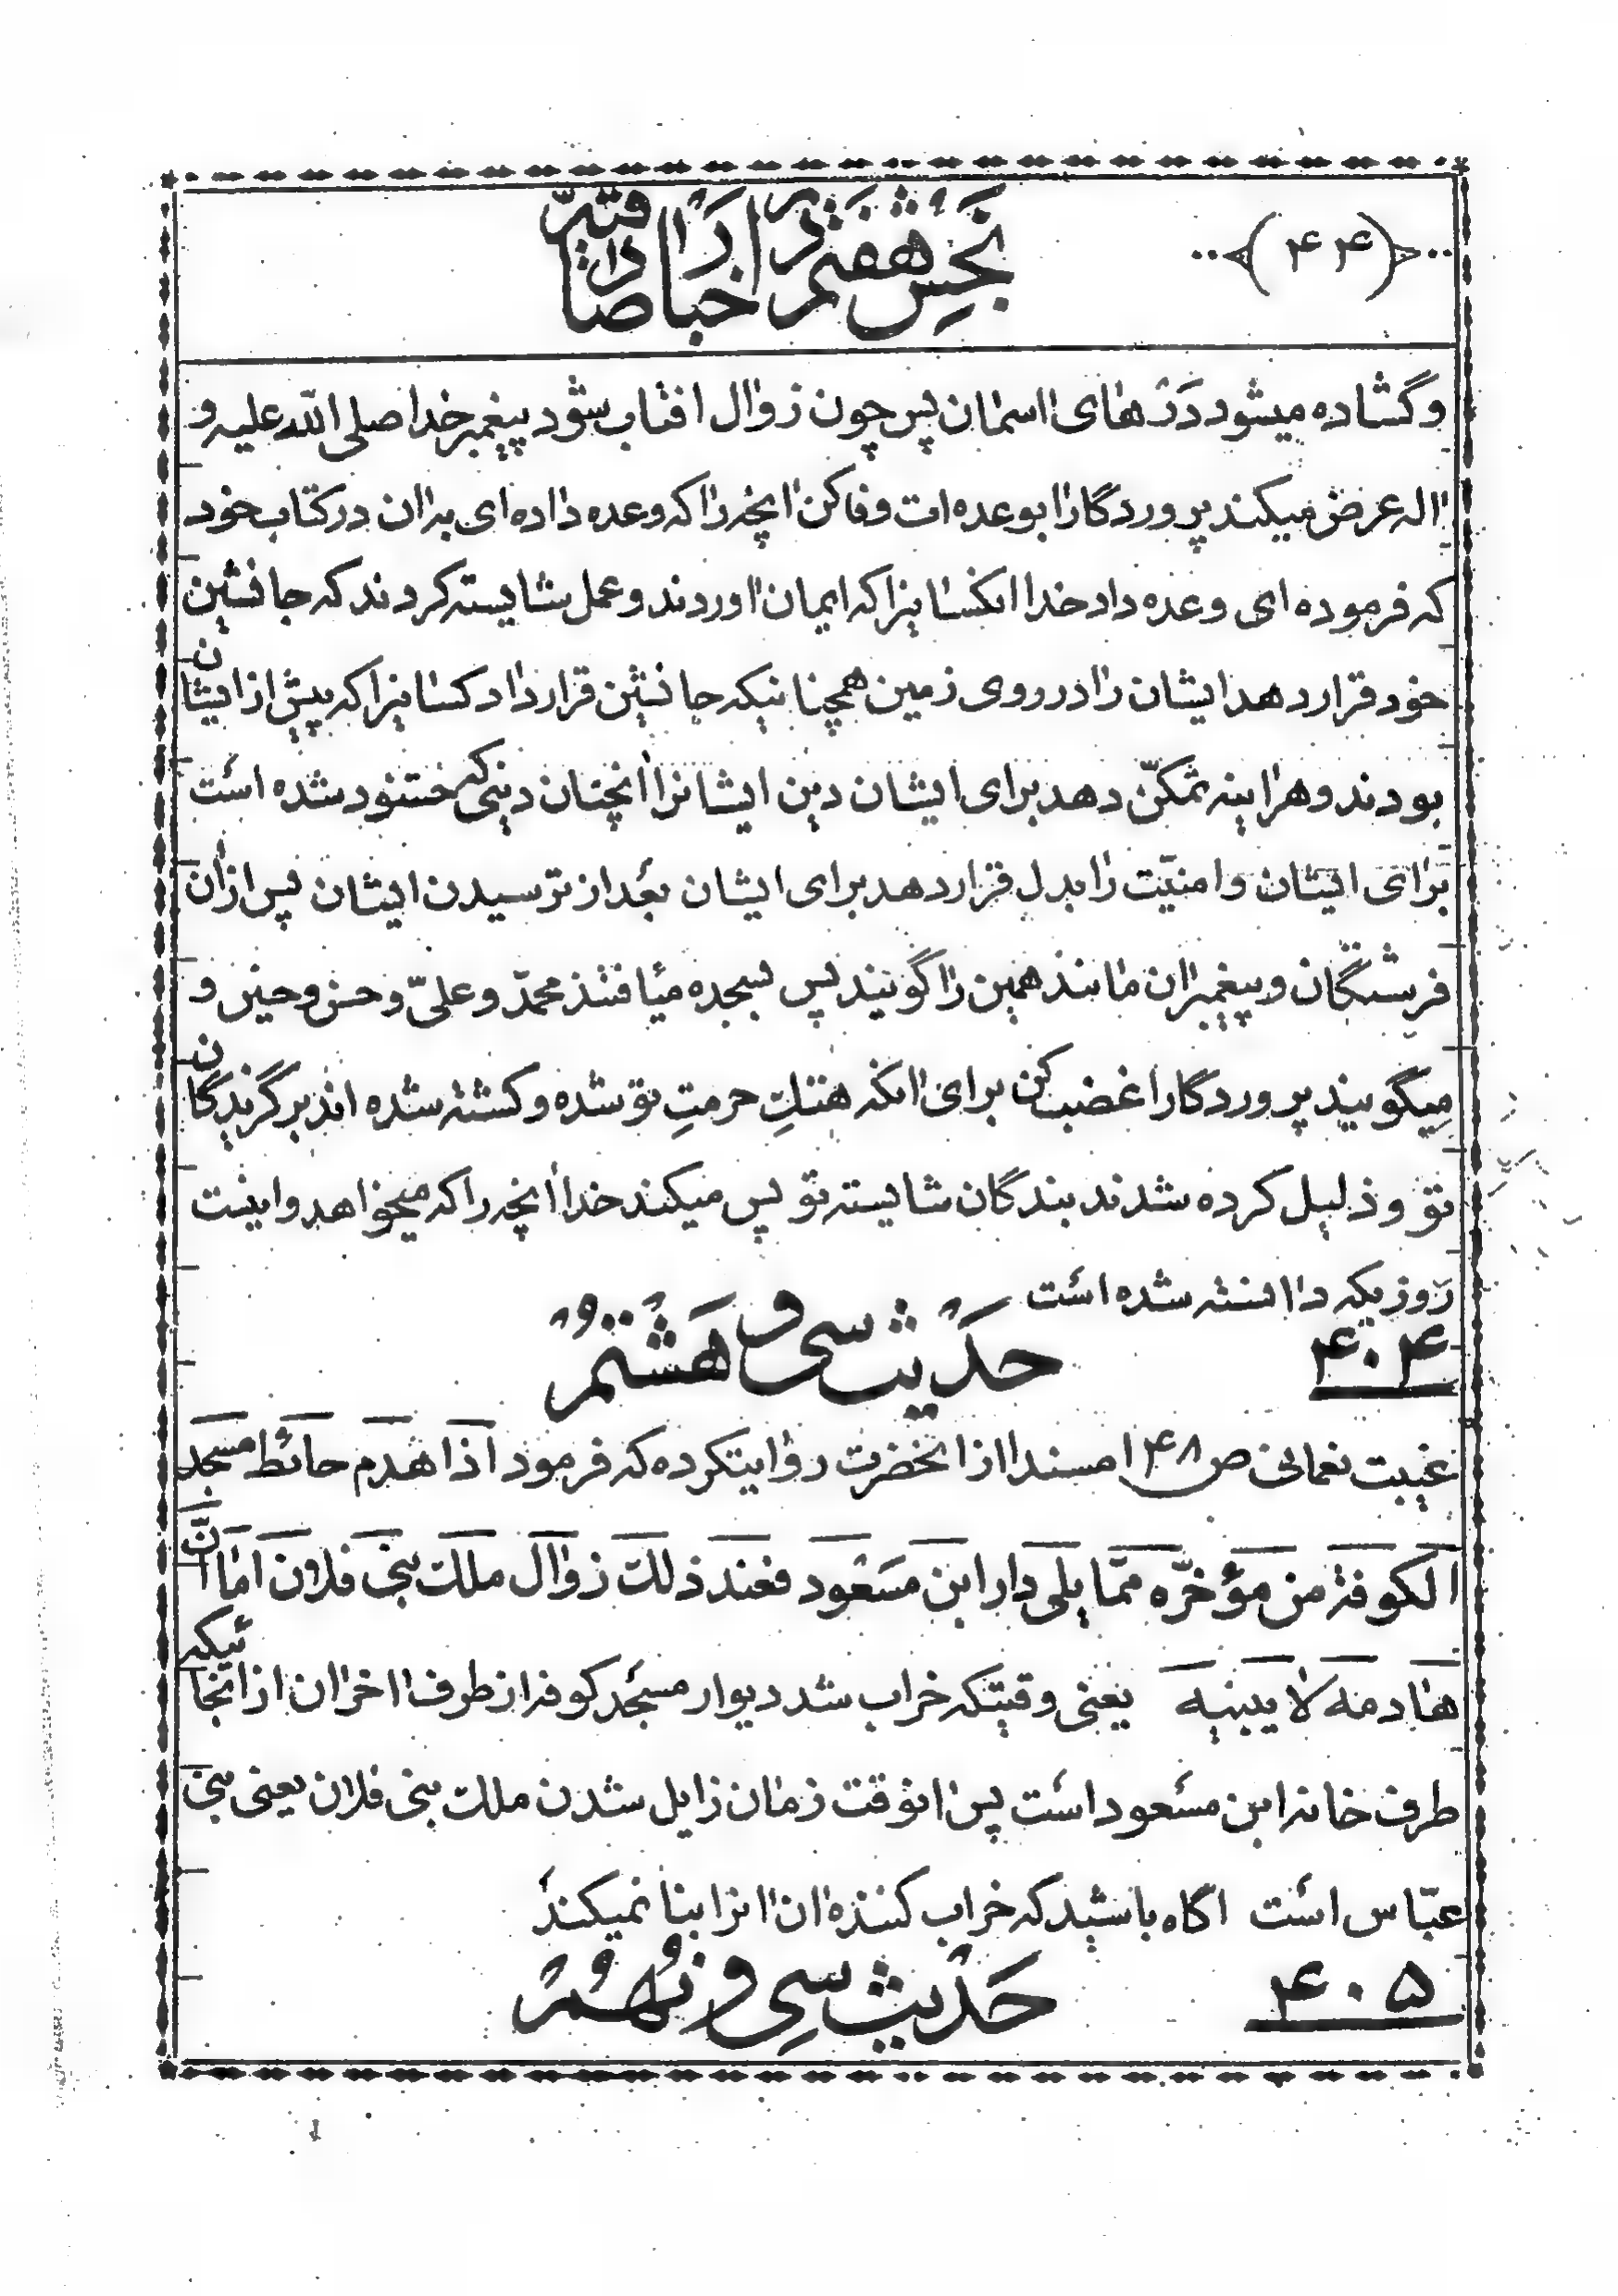 ﴿ ۴۴ ﴾
بخش هفتم در اخبار صادقیه
و گشاده میشود درهای اسمان پس چون زوال افتاب بشود پیغمبر خدا صلی الله علیه و
اله عرض میکند پروردگارا بوعده ات وفا کن انچه را که وعده داده ای بران در کتاب خود
که فرموده ای وعده داد خدا انکسانیرا که ایمان اوردند و عمل شایسته کردند که جانشین
خود قرار دهد ایشان را در روی زمین همچنانیکه جانشین قرار داد کسانیرا که پیش از ایشان
بودند و هراینه تمکّن دهد برای ایشان دین ایشانرا انچنان دینی که خشنود شده است
برای ایشان و امنیّت را بدل قرار دهد برای ایشان بعد از ترسیدن ایشان پس ازان
فرشتگان و پیغمبران مانند همین را گویند پس بسجده میافتند محمّد و علیّ و حسن و حسین و
میگویند پروردگارا غضب کن برای انکه هتک حرمتِ تو شده و کشته شده اند برگزیدگان
تو و ذلیل کرده شدند بندگان شایسته تو پس میکند خدا انچه را که میخواهد و اینست
روزیکه دانسته شده است
۴۰۴ حدیث سی و هشتم
غیبت نعمانی ص ۱۴۸ مسندا از انحضرت روایتکرده که فرمود اذا هدم حائط مسجد
الکوفة من مؤخّره ممّا یلی دار ابن مسعود فعند ذلک زوال ملک بنی فلان اما انّ
هادمه لا یبنیه یعنی وقتیکه خراب شد دیوار مسجد کوفه از طرف اخر ان از انجائیکه
طرف خانه ابن مسعود است پس انوقت زمان زایل شدن ملک بنی فلان یعنی بنی
عبّاس است اگاه باشید که خراب کننده ان انرا بنا نمیکند
۴۰۵ حدیث سی و نهم